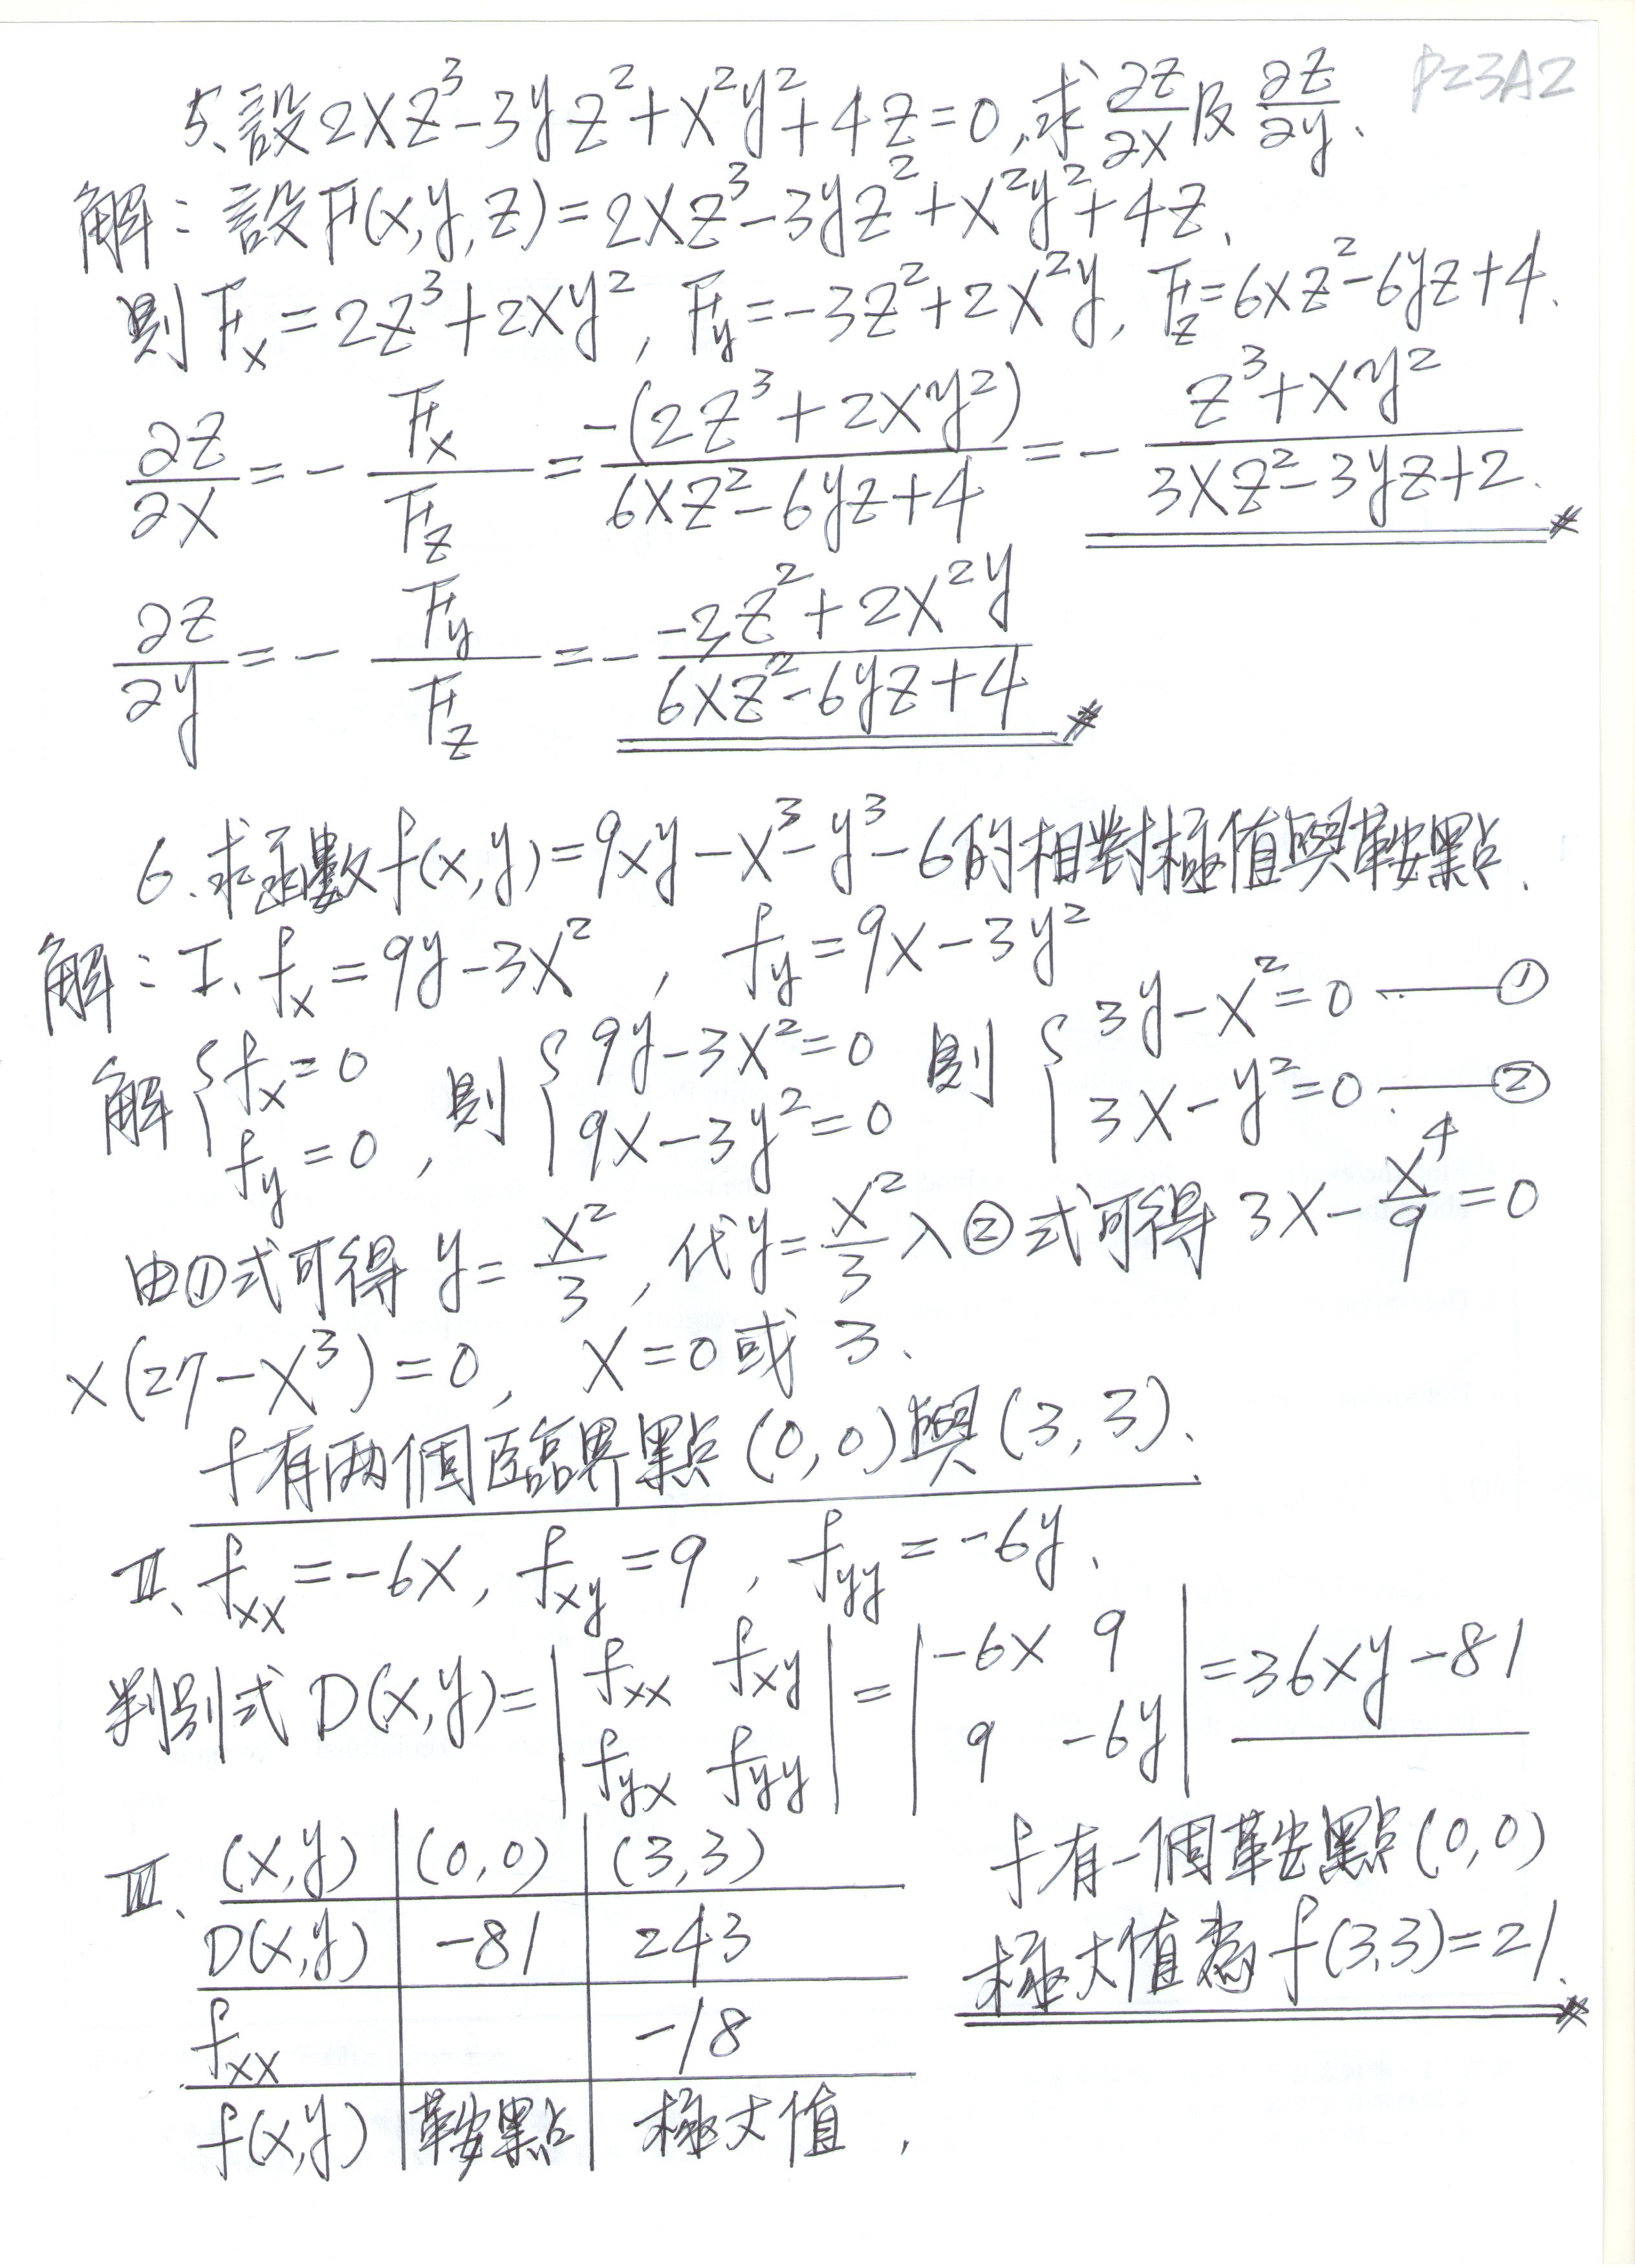 P23A2
5、設2xz³-3yz²+x²y²+4z=0,求∂z/∂x及∂z/∂y、
解：設F(x,y,z)=2xz³-3yz²+x²y²+4z、
則Fx=2z³+2xy², Fy=-3z²+2x²y, Fz=6xz²-6yz+4.
∂z/∂x=-Fx/Fz=-(2z³+2xy²)/(6xz²-6yz+4)=-(z³+xy²)/(3xz²-3yz+2).#
∂z/∂y=-Fy/Fz=-(-3z²+2x²y)/(6xz²-6yz+4)#
6.求函數f(x,y)=9xy-x³-y³-6的相對極值與鞍點、
解：I、fx=9y-3x², fy=9x-3y²
解{fx=0 fy=0, 則{9y-3x²=0 9x-3y²=0 則{3y-x²=0—① 3x-y²=0—②
由①式可得y=x²/3,代y=x²/3入②式可得3x-x⁴/9=0
x(27-x³)=0, x=0或3、
f有兩個臨界點(0,0)與(3,3)、
II、fxx=-6x, fxy=9, fyy=-6y、
判別式D(x,y)=|fxx fxy fyx fyy|=|-6x 9 9 -6y|=36xy-81
III、(x,y) (0,0) (3,3)
D(x,y) -81 243
fxx -18
f(x,y) 鞍點 極大值,
f有一個鞍點(0,0)
極大值為f(3,3)=21.#